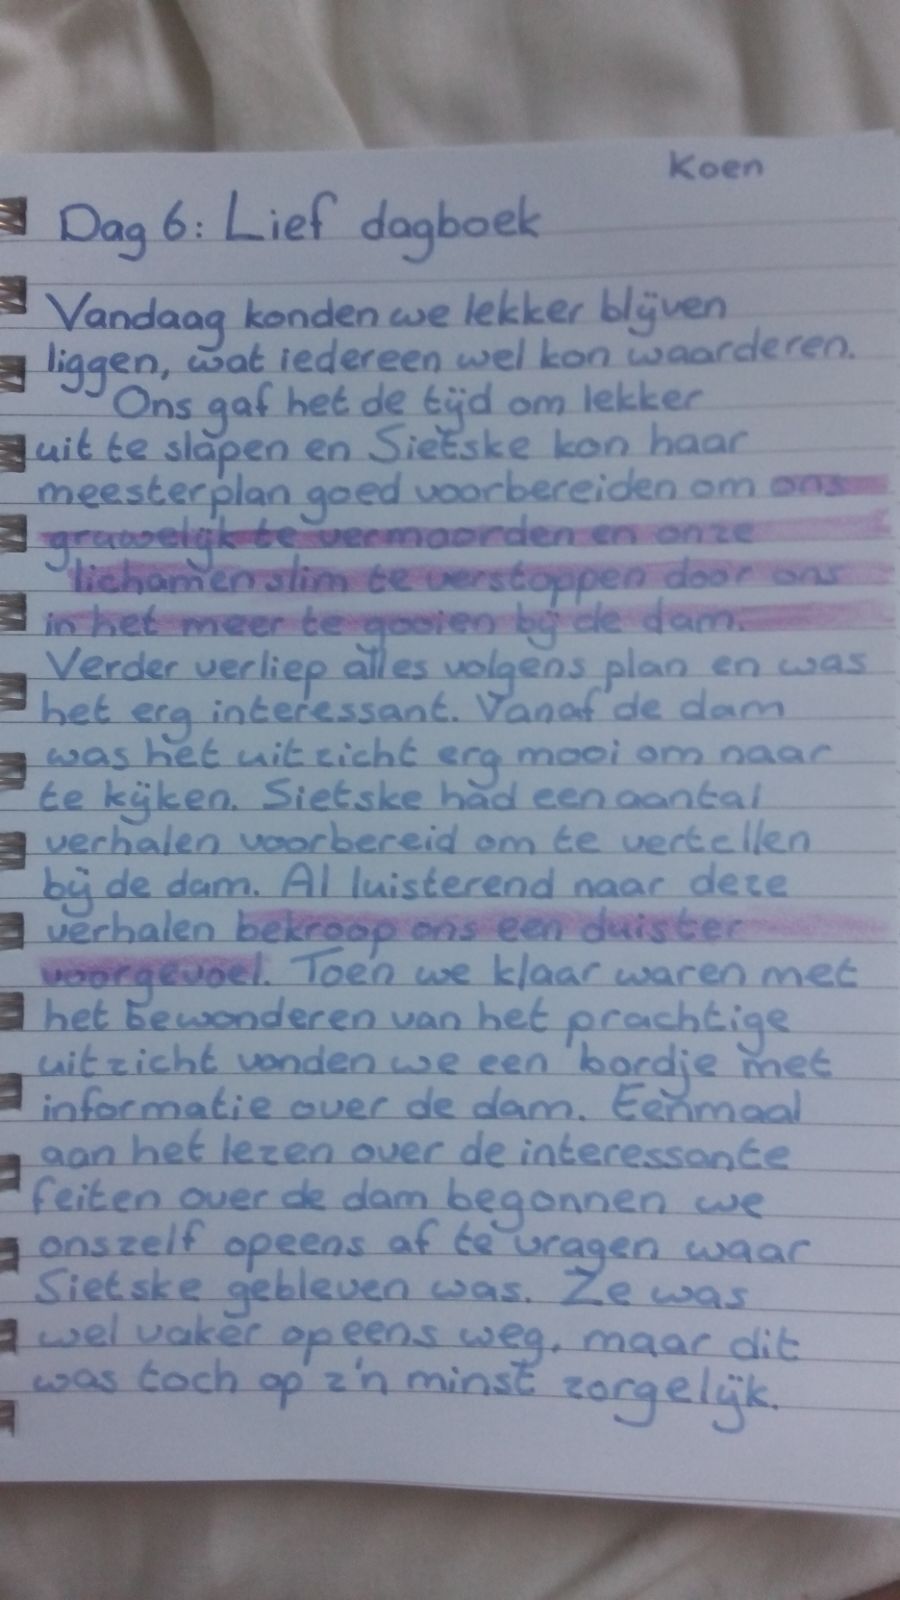 Koen
Dag 6: Lief dagboek
Vandaag konden we lekker blijven
liggen, wat iedereen wel kon waarderen.
Ons gaf het de tijd om lekker
uit te slapen en Sietske kon haar
meesterplan goed voorbereiden om ons
gruwelijk te vermoorden en onze
lichamen slim te verstoppen door ons
in het meer te gooien bij de dam.
Verder verliep alles volgens plan en was
het erg interessant. Vanaf de dam
was het uitzicht erg mooi om naar
te kijken. Sietske had een aantal
verhalen voorbereid om te vertellen
bij de dam. Al luisterend naar deze
verhalen bekroop ons een duister
voorgevoel. Toen we klaar waren met
het bewonderen van het prachtige
uitzicht vonden we een bordje met
informatie over de dam. Eenmaal
aan het lezen over de interessante
feiten over de dam begonnen we
onszelf opeens af te vragen waar
Sietske gebleven was. Ze was
wel vaker opeens weg, maar dit
was toch op z'n minst zorgelijk.